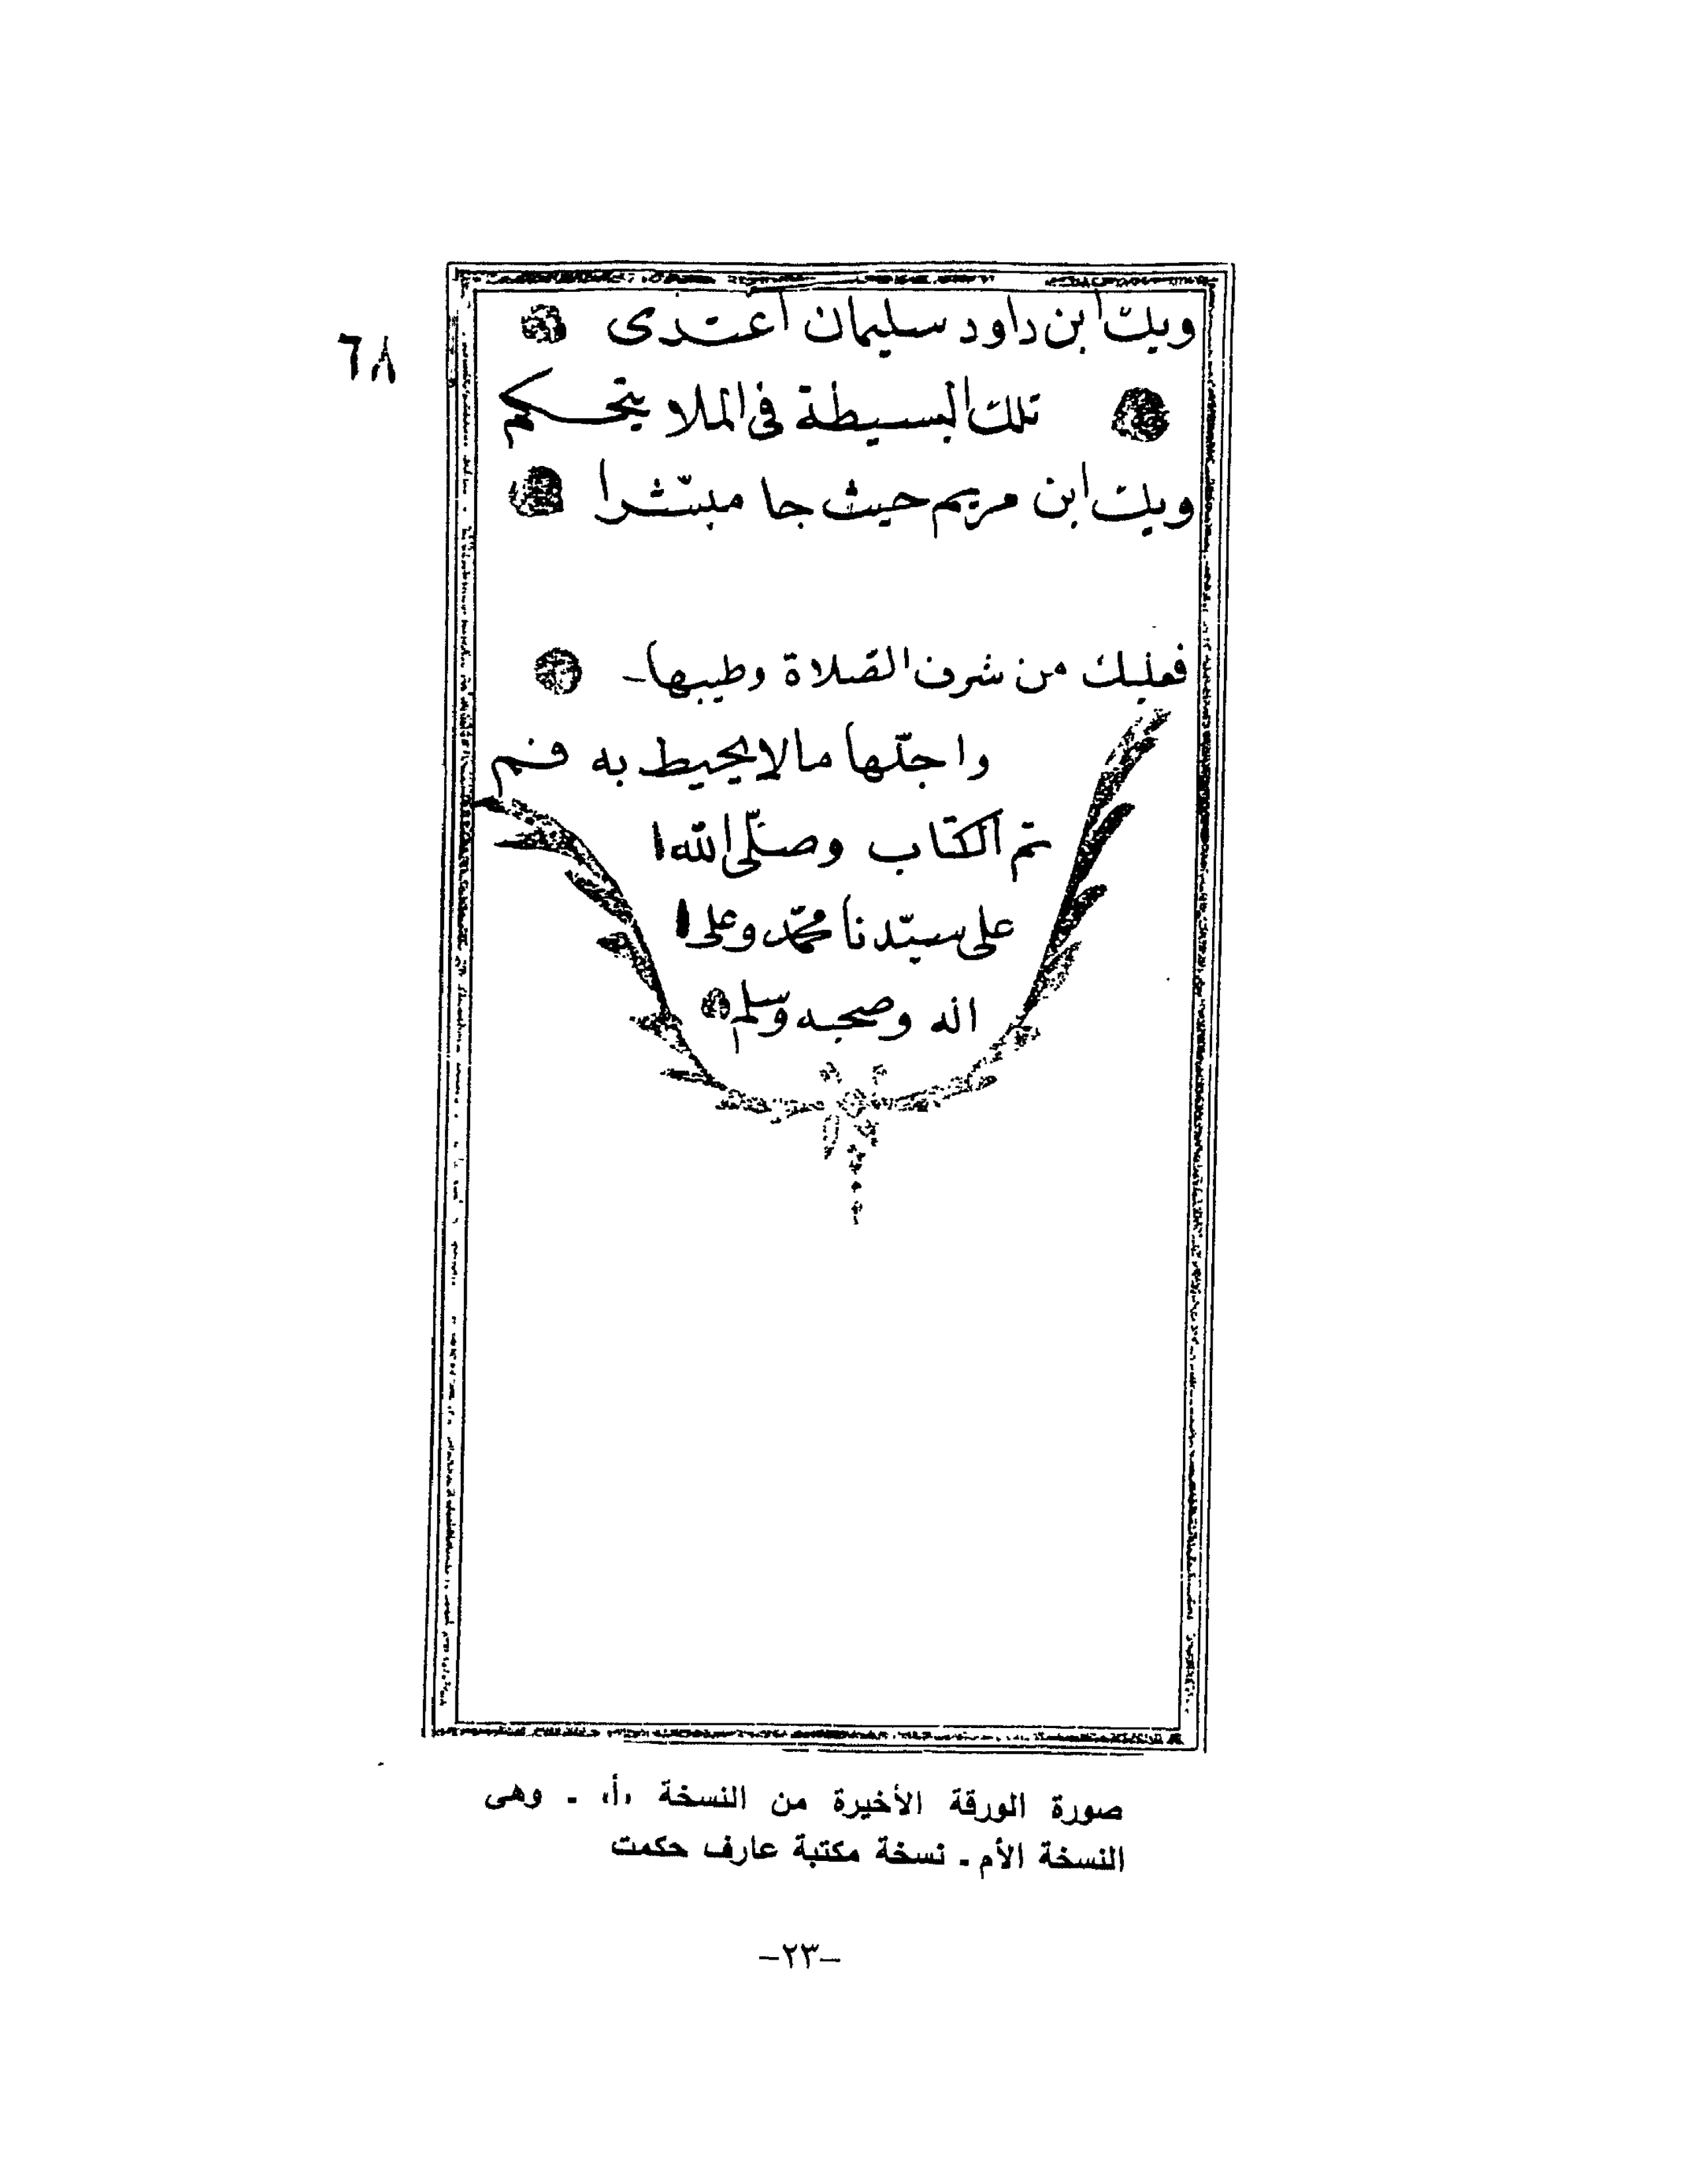 وبك ابن داود سليمان اعتدى
٦٨
تلك البسيطة فى الملا يتحكم
وبك ابن مريم حيث جا مبشرا
فعليك من شرف الصّلاة وطيبها
واجلّها مالا يحيط به فم
تم الكتاب وصلّى الله
على سيّدنا محمّد وعلى
اله وصحبه وسلم
صورة الورقة الأخيرة من النسخة «أ» - وهى
النسخة الأم - نسخة مكتبة عارف حكمت
-٢٣-